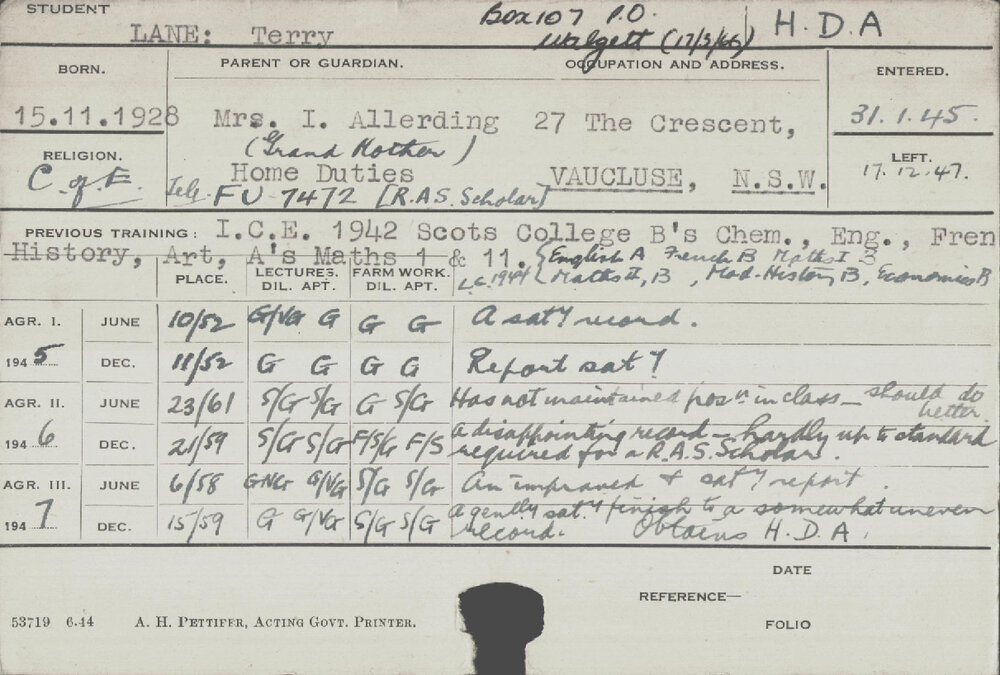 STUDENT
Box 107 P.O.
H.D.A
LANE: Terry
Walgett (17/3/46)
BORN.
PARENT OR GUARDIAN.
OCCUPATION AND ADDRESS.
ENTERED.
15.11.1928
Mrs. I. Allerding 27 The Crescent,
31.1.45.
(Grand Mother)
RELIGION.
LEFT.
C. of E.
Home Duties
VAUCLUSE, N.S.W.
17.12.47.
Tel. FU-7472 [R.A.S. Scholar]
PREVIOUS TRAINING: I.C.E. 1942 Scots College B's Chem., Eng., Fren
History, Art, A's Maths 1 & 11. {English A French B Maths I B
L.C. 1944 Maths II, B, Mod. History B, Economics B
PLACE. LECTURES. FARM WORK.
DIL. APT. DIL. APT.
AGR. I. JUNE 10/52 G/VG G G G A sat'y record.
1945 DEC. 11/52 G G G G Report sat'y
AGR. II. JUNE 23/61 S/G S/G G S/G Has not maintained pos'n in class — should do better
1946 DEC. 21/59 S/G S/G F/S/G F/S A disappointing record — hardly up to standard
required for a R.A.S. Scholar.
AGR. III. JUNE 6/58 G/VG S/G S/G An improved & sat'y report.
1947 DEC. 15/59 G G/VG S/G S/G A sat'y finish to a somewhat uneven
record. Obtains H.D.A.
DATE
REFERENCE—
53719 6.44 A. H. PETTIFER, ACTING GOVT. PRINTER.
FOLIO